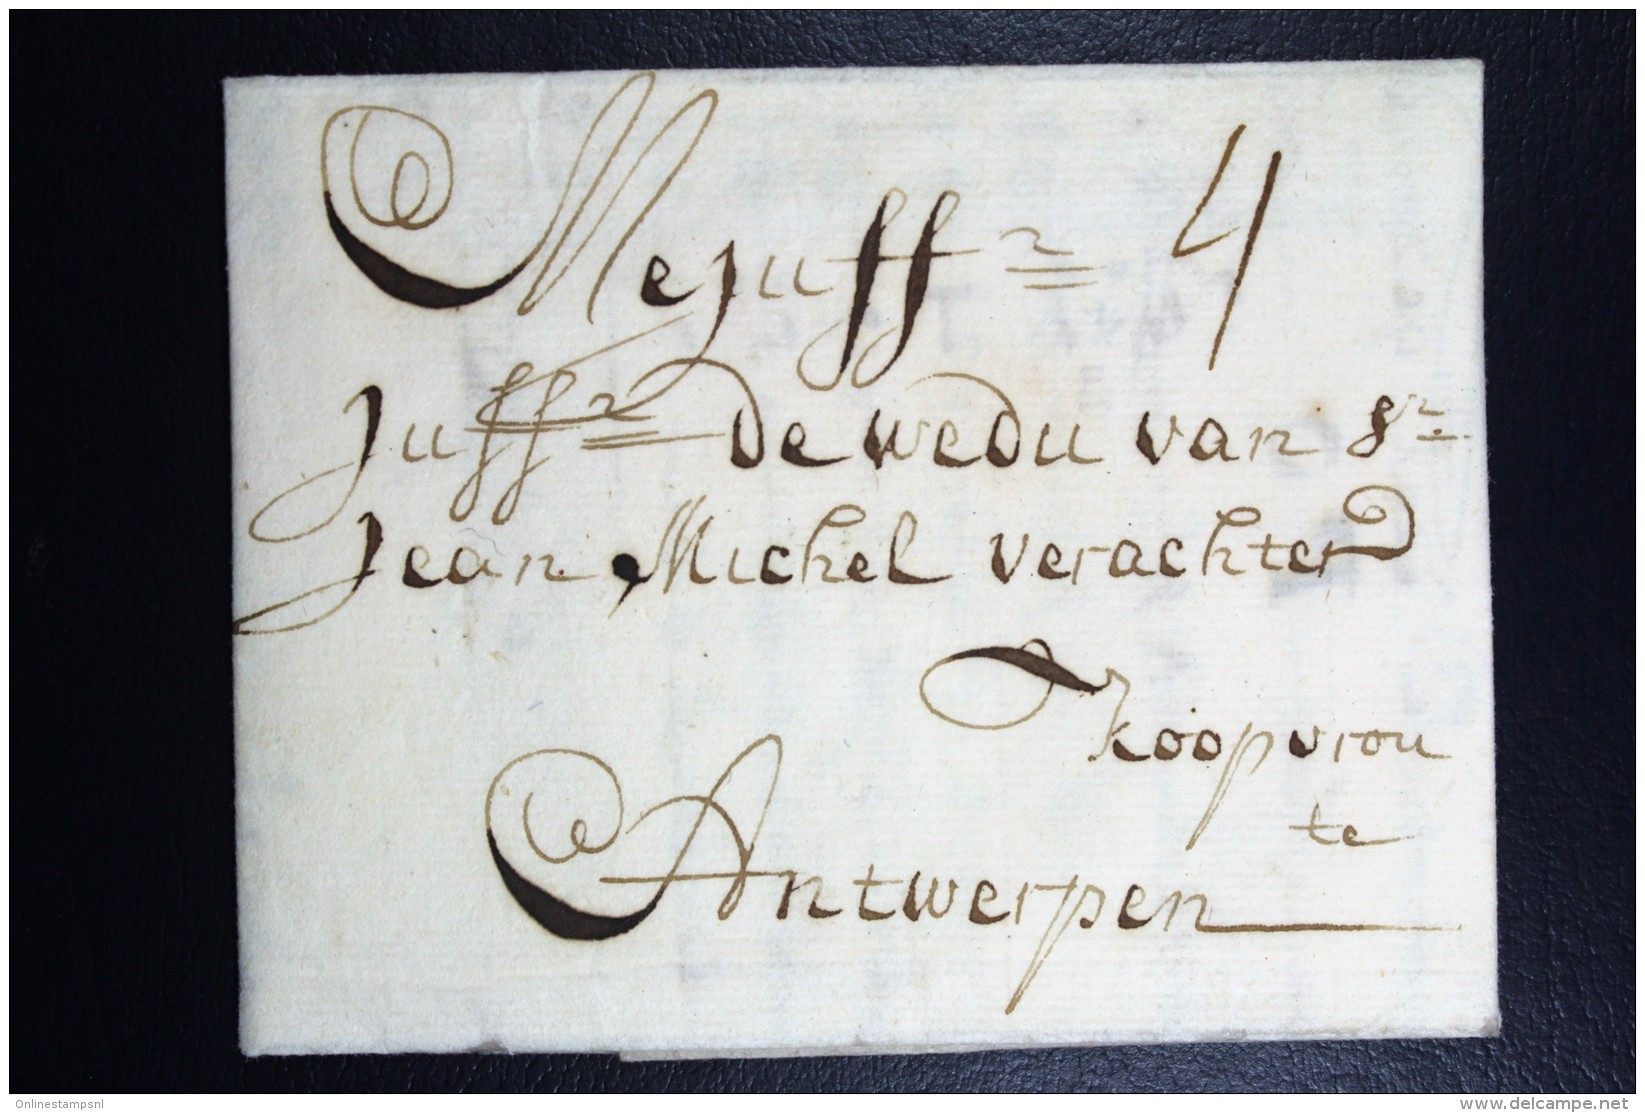 Mejuffr 4
Juffr de wedu van Sr
Jean Michel verachter
koopvrou
te
Antwerpen
Onlinestampsnl
www.delcampe.net